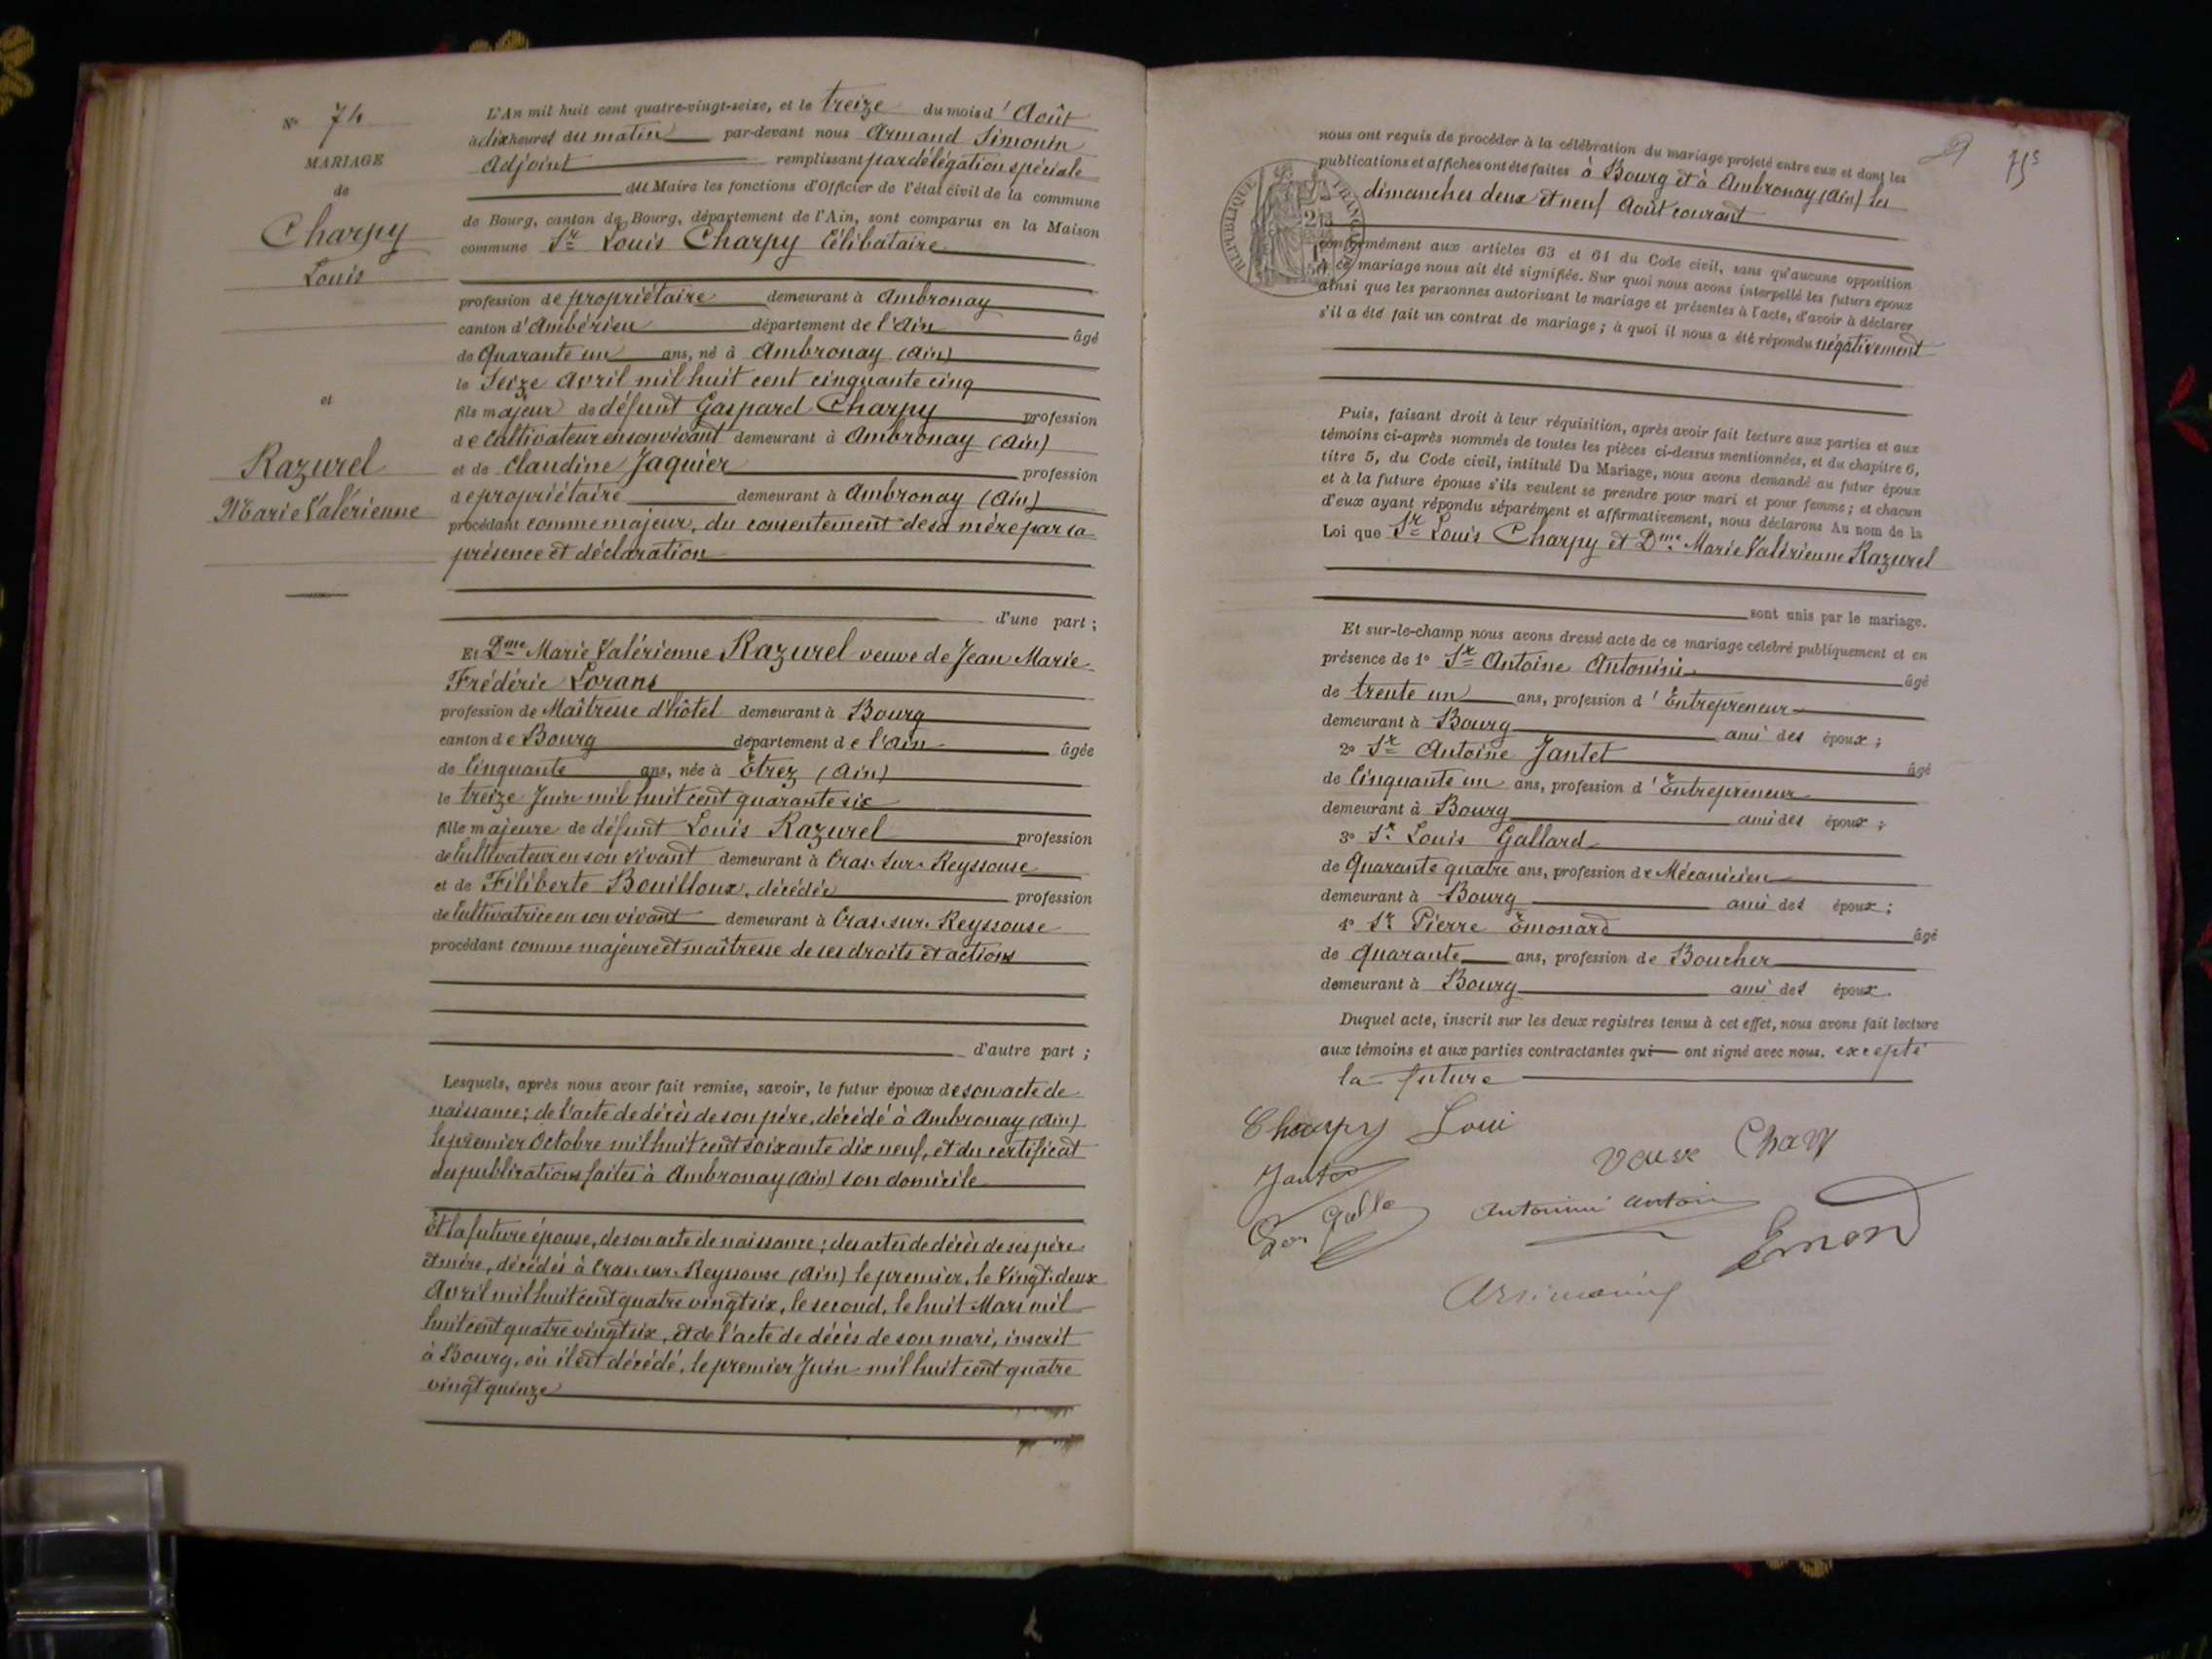 N° 74
MARIAGE
de
Charpy
Louis
et
Razurel
Marie Valérienne
L'An mil huit cent quatre-vingt-seize, et le treize du mois d'Août
à dix heures du matin par-devant nous Armand Simonin
Adjoint remplissant par délégation spéciale
du Maire les fonctions d'Officier de l'état civil de la commune
de Bourg, canton de Bourg, département de l'Ain, sont comparus en la Maison
commune Sr Louis Charpy Célibataire
profession de propriétaire demeurant à Ambronay
canton d'Ambérieu département de l'Ain âgé
de Quarante un ans, né à Ambronay (Ain)
le Seize Avril mil huit cent cinquante cinq
fils majeur de défunt Gaspard Charpy profession
de Cultivateur en son vivant demeurant à Ambronay (Ain)
et de Claudine Jaquier profession
de propriétaire demeurant à Ambronay (Ain)
procédant comme majeur, du consentement de sa mère par sa
présence et déclaration
d'une part ;
Et Dme Marie Valérienne Razurel veuve de Jean Marie
Frédéric Lorans
profession de Maîtresse d'hôtel demeurant à Bourg
canton de Bourg département de l'Ain âgée
de Cinquante ans, née à Étrez (Ain)
le treize Juin mil huit cent quarante six
fille majeure de défunt Louis Razurel profession
de Cultivateur en son vivant demeurant à Cras-sur-Reyssouse
et de Filiberte Bouilloux, décédée profession
de Cultivatrice en son vivant demeurant à Cras-sur-Reyssouse
procédant comme majeure et maîtresse de ses droits et actions
d'autre part ;
Lesquels, après nous avoir fait remise, savoir, le futur époux de son acte de
naissance ; de l'acte de décès de son père, décédé à Ambronay (Ain)
le premier Octobre mil huit cent soixante dix neuf, et du certificat
des publications faites à Ambronay (Ain) son domicile
Et la future épouse, de son acte de naissance ; des actes de décès de ses père
et mère, décédés à Cras-sur-Reyssouse (Ain) le premier, le Vingt-deux
Avril mil huit cent quatre vingt six, le second, le huit Mars mil
huit cent quatre vingt six, et de l'acte de décès de son mari, inscrit
à Bourg, où il est décédé, le premier Juin mil huit cent quatre
vingt quinze
75
RÉPUBLIQUE FRANÇAISE
nous ont requis de procéder à la célébration du mariage projeté entre eux et dont les
publications et affiches ont été faites à Bourg et à Ambronay (Ain) les
dimanches deux et neuf Août courant
conformément aux articles 63 et 64 du Code civil, sans qu'aucune opposition
à ce mariage nous ait été signifiée. Sur quoi nous avons interpellé les futurs époux
ainsi que les personnes autorisant le mariage et présentes à l'acte, d'avoir à déclarer
s'il a été fait un contrat de mariage ; à quoi il nous a été répondu négativement
Puis, faisant droit à leur réquisition, après avoir fait lecture aux parties et aux
témoins ci-après nommés de toutes les pièces ci-dessus mentionnées, et du chapitre 6,
titre 5, du Code civil, intitulé Du Mariage, nous avons demandé au futur époux
et à la future épouse s'ils veulent se prendre pour mari et pour femme ; et chacun
d'eux ayant répondu séparément et affirmativement, nous déclarons Au nom de la
Loi que Sr Louis Charpy et Dme Marie Valérienne Razurel
sont unis par le mariage.
Et sur-le-champ nous avons dressé acte de ce mariage célébré publiquement et en
présence de 1° Sr Antoine Antonini âgé
de trente un ans, profession d'Entrepreneur
demeurant à Bourg ami des époux ;
2° Sr Antoine Jantet âgé
de Cinquante un ans, profession d'Entrepreneur
demeurant à Bourg ami des époux ;
3° Sr Louis Gallard
de Quarante quatre ans, profession de Mécanicien
demeurant à Bourg ami des époux ;
4° Sr Pierre Émonard âgé
de Quarante ans, profession de Boucher
demeurant à Bourg ami des époux.
Duquel acte, inscrit sur les deux registres tenus à cet effet, nous avons fait lecture
aux témoins et aux parties contractantes qui ont signé avec nous. excepté
la future
Charpy Loui
Jantet
Antonini Antoin